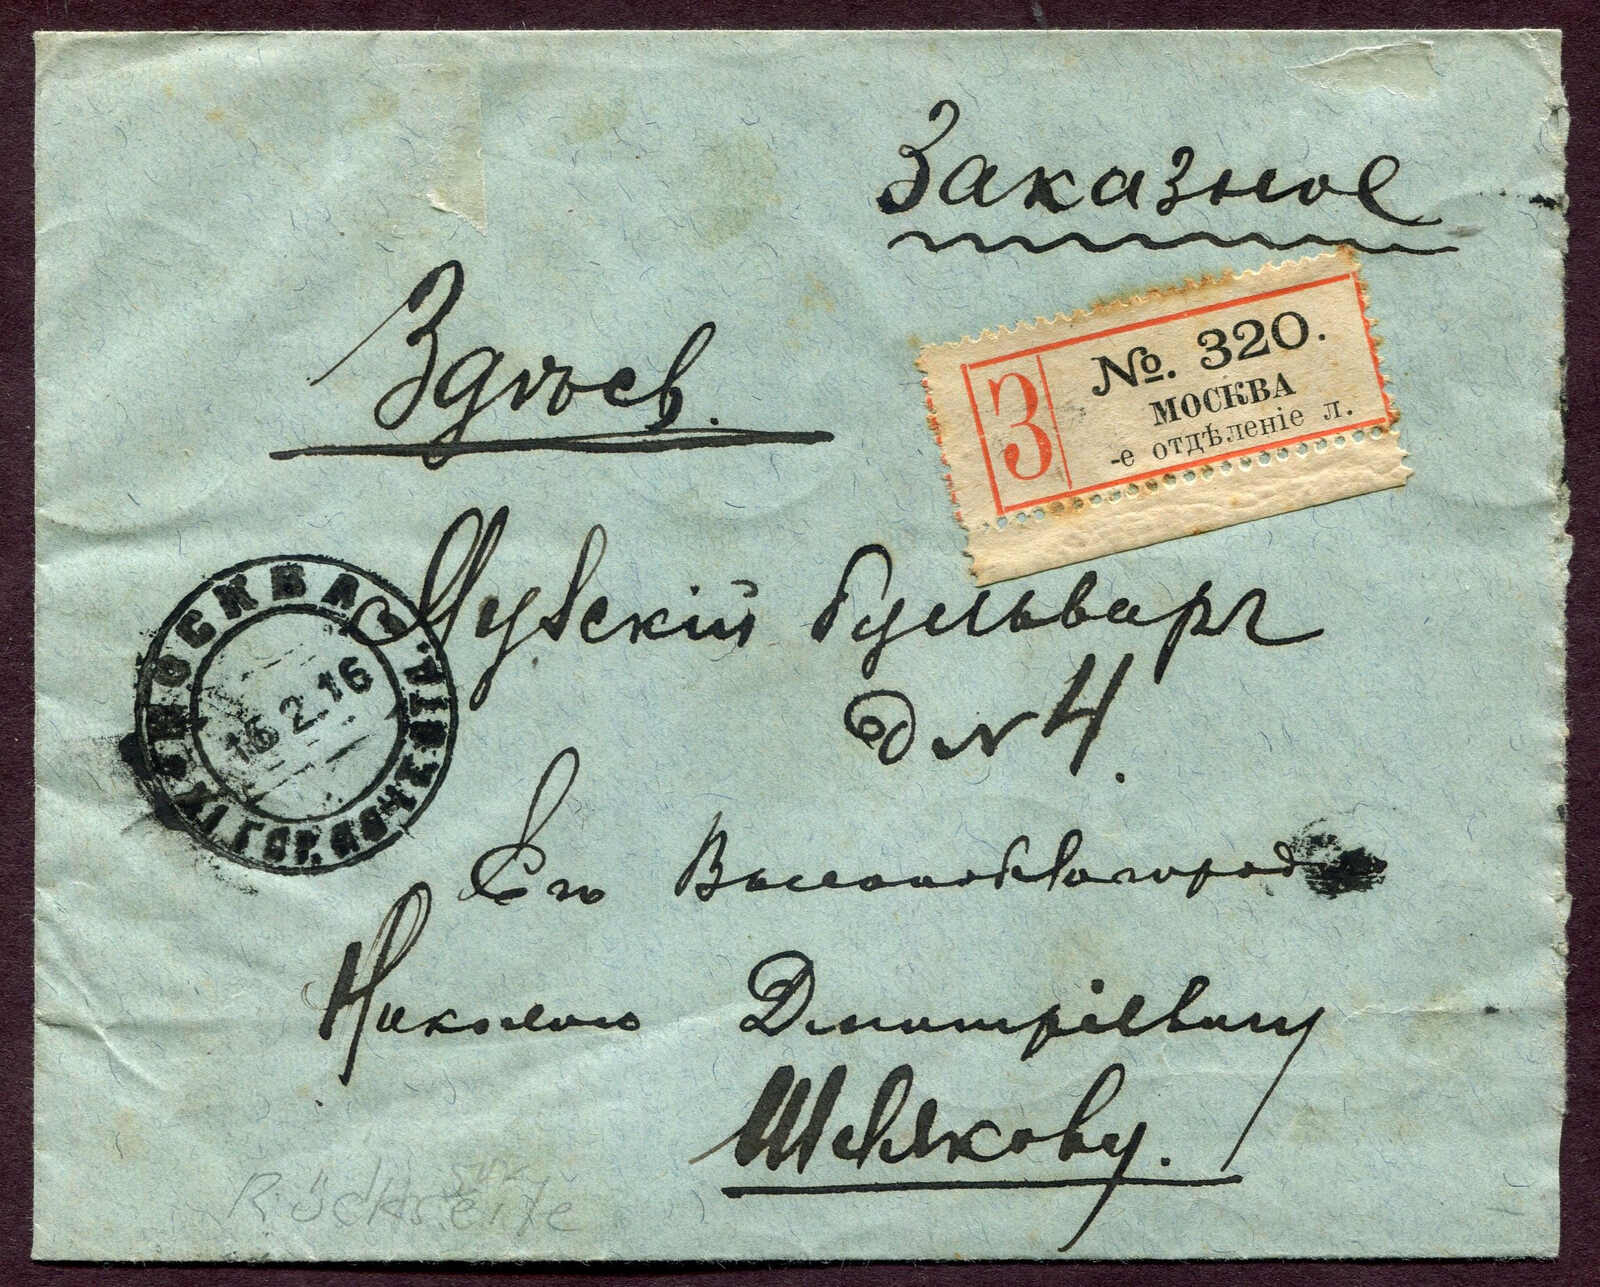 Заказное
Здѣсь.
З
№. 320.
МОСКВА
-е отдѣленіе л.
Зубскій бульваръ
д № 4.
МОСКВА
16 2.16
XI ГОР. ПОЧТ.
Его Высокоблагород
Николаю Дмитріевичу
Шевлякову.
Rückseite